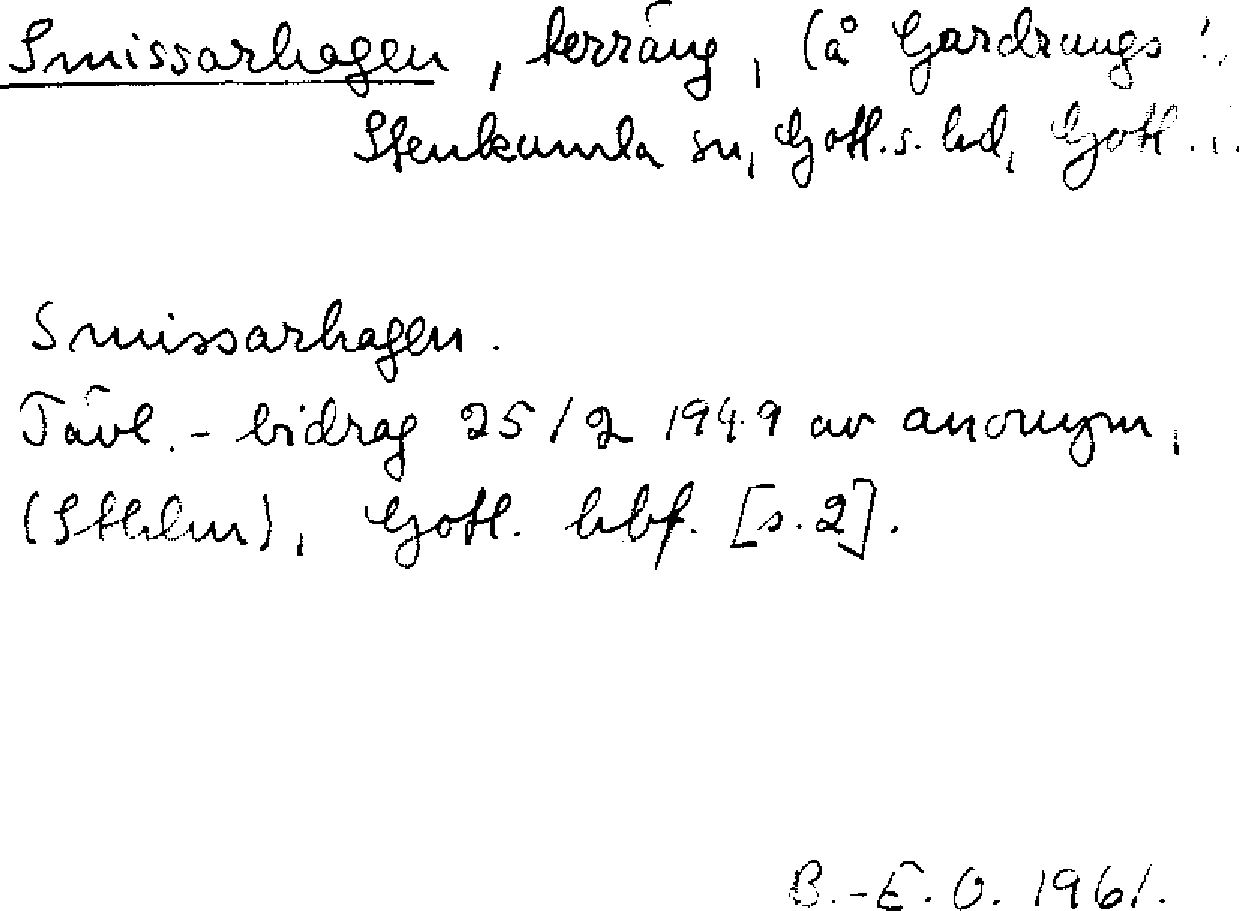 Smissarhagen, terräng, (å Gardrungs
Stenkumla sn, Gotl.s. hd, Gotl.
Smissarhagen.
Tävl.-bidrag 25/2 1949 av anonym,
(Sthlm), Gotl. hbf. [s.2].
B.-E. O. 1961.